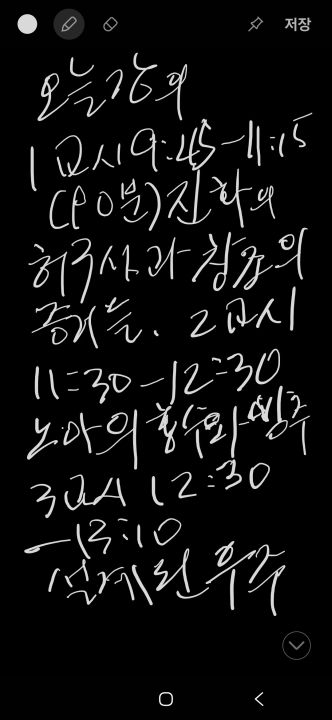 저장
오늘강의
1교시9:45-11:15
(90분)진화의
허구사과창조의
증거들. 2교시
11:30-12:30
노아의홍수와방주
3교시 12:30
-13:10
설계된우주